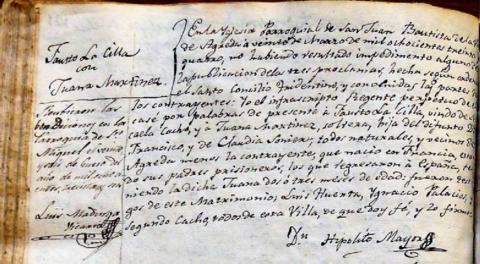 Fausto La Cilla
con
Juana Martinez.
Recibieron las
bendiciones en la
Parroquia de Sn
Miguel el veinte
y ocho de Enero del
año de mil ochocien
Luis Madurga
Vicario
En la Iglesia Parroquial de San Juan Bautista de la
de Agreda a veinte de Marzo de mil ochocientos treinta
quatro, no habiendo resultado impedimento alguno de
la publicacion de las tres proclamas, hechas segun ordena
el Santo Concilio Tridentino, y concluidas las partes de
los contrayentes: Yo el infrascripto Regente perpetuo de
casé por palabras de presente á Fausto La Cilla, viudo de
caela Cacho, y á Juana Martinez, soltera, hija del difunto
Francisco, y de Claudia Sonier; todos naturales y vecinos de
Agreda menos la contrayente, que nació en Francia, estan
do sus padres prisioneros, los que regresaron á España, te
niendo la dicha Juana dos ó tres meses de edad: fueron testi
gos de este Matrimonio, Luis Huerta, Ygnacio Palacios, y
Segundo Cacho, todos de esta Villa, de que doy fé, y lo firmé
Dn Hipolito Mayor